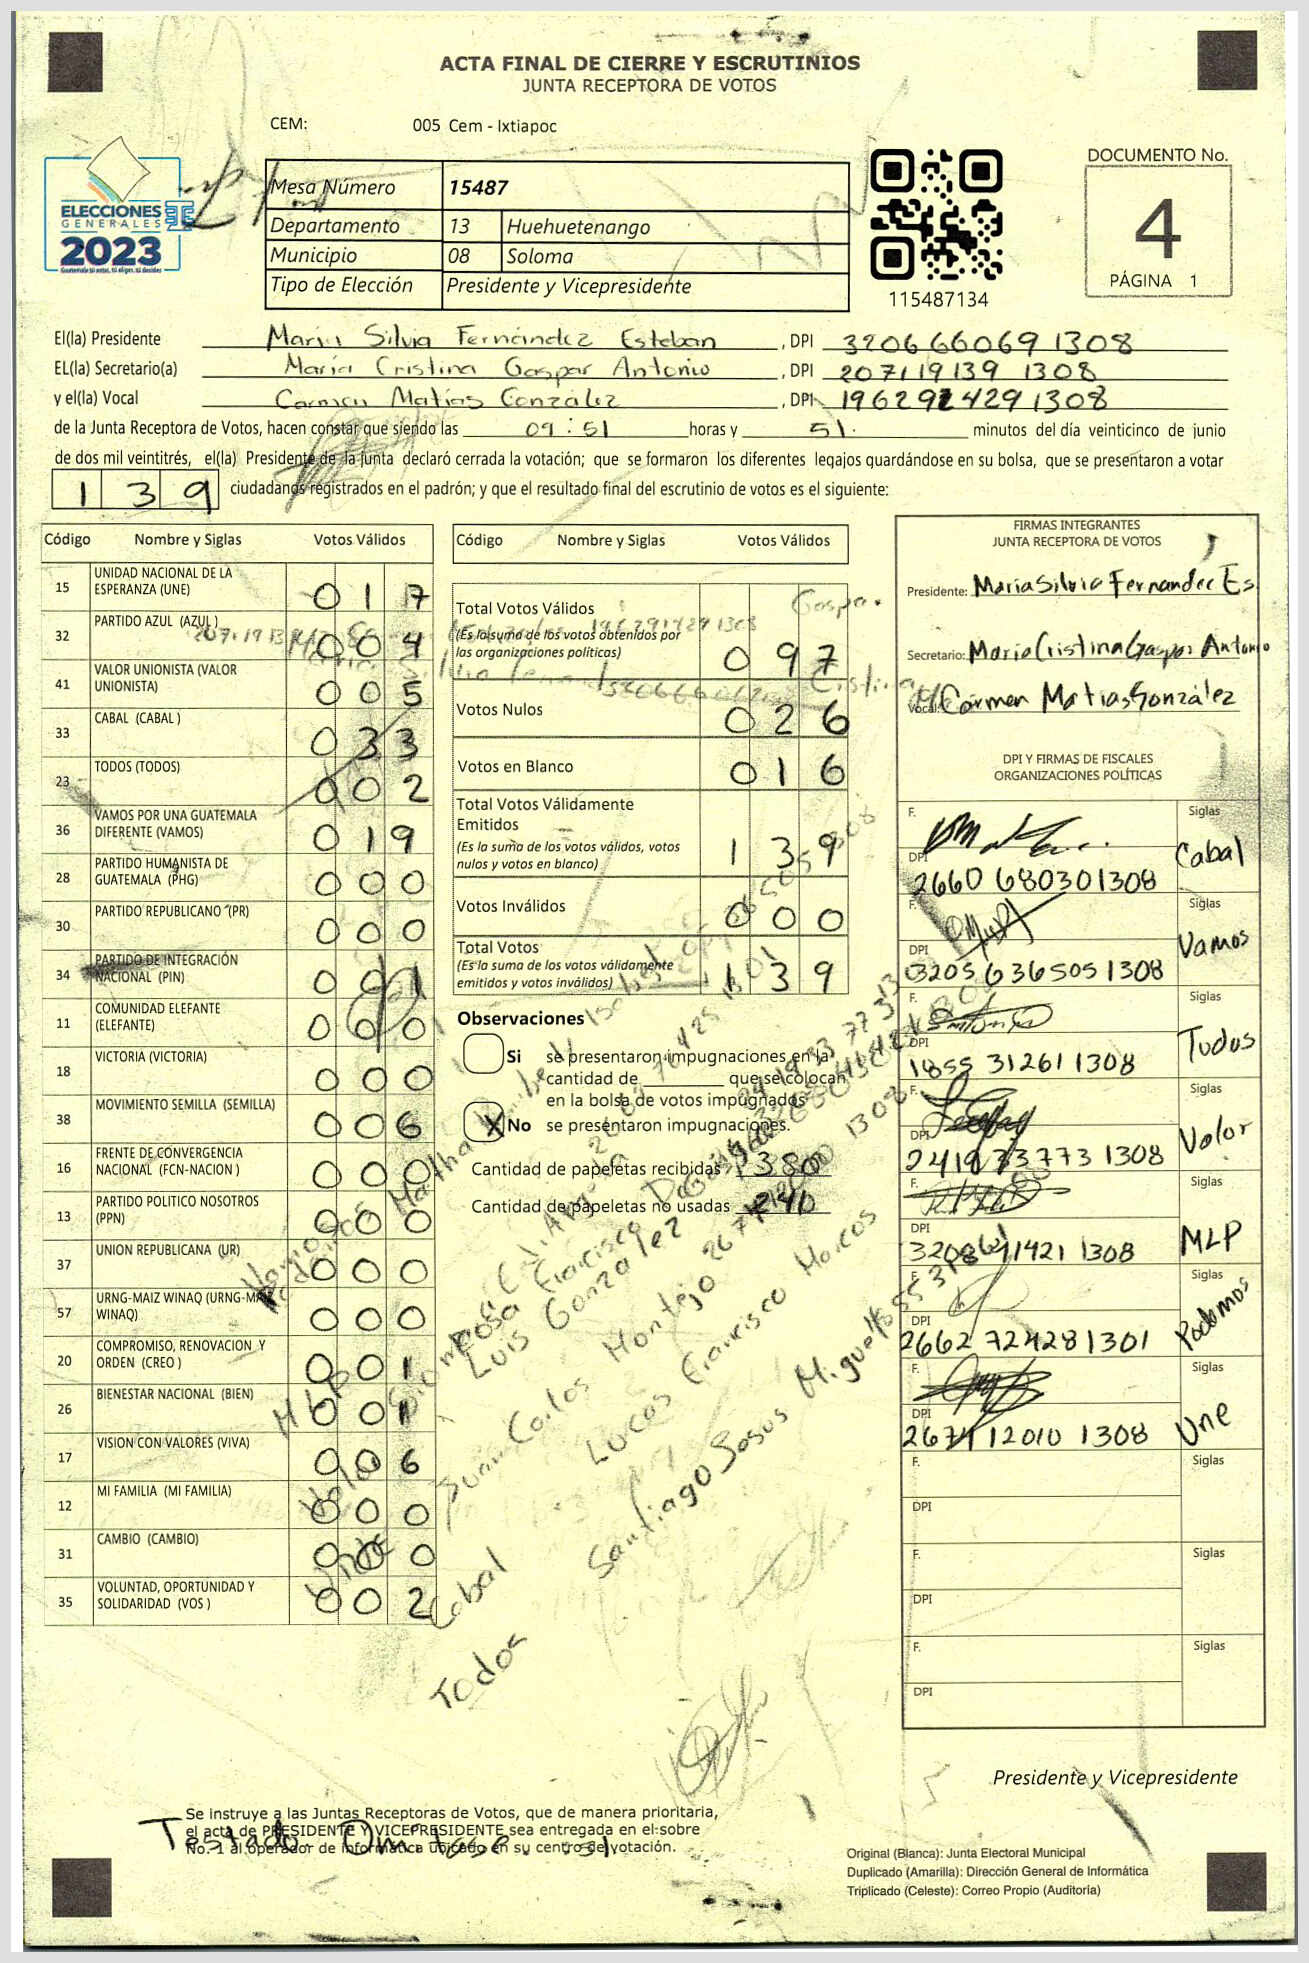 ACTA FINAL DE CIERRE Y ESCRUTINIOS
JUNTA RECEPTORA DE VOTOS
CEM: 005 Cem - Ixtiapoc
ELECCIONES
GENERALES
2023
Guatemala tú votas, tú eliges, tú decides
Mesa Número 15487
Departamento 13 Huehuetenango
Municipio 08 Soloma
Tipo de Elección Presidente y Vicepresidente
115487134
DOCUMENTO No.
4
PÁGINA 1
El(la) Presidente María Silvia Fernández Esteban, DPI 3206660691308
EL(la) Secretario(a) María Cristina Gaspar Antonio, DPI 207119139 1308
y el(la) Vocal Carmen Matías González, DPI 1962924291308
de la Junta Receptora de Votos, hacen constar que siendo las 09:51 horas y 51. minutos del día veinticinco de junio
de dos mil veintitrés, el(la) Presidente de la junta declaró cerrada la votación; que se formaron los diferentes legajos guardándose en su bolsa, que se presentaron a votar
139 ciudadanos registrados en el padrón; y que el resultado final del escrutinio de votos es el siguiente:
Código Nombre y Siglas Votos Válidos
15 UNIDAD NACIONAL DE LA ESPERANZA (UNE) 017
32 PARTIDO AZUL (AZUL) 004
41 VALOR UNIONISTA (VALOR UNIONISTA) 005
33 CABAL (CABAL ) 033
23 TODOS (TODOS) 002
36 VAMOS POR UNA GUATEMALA DIFERENTE (VAMOS) 019
28 PARTIDO HUMANISTA DE GUATEMALA (PHG) 000
30 PARTIDO REPUBLICANO (PR) 000
34 PARTIDO DE INTEGRACIÓN NACIONAL (PIN) 001
11 COMUNIDAD ELEFANTE (ELEFANTE) 000
18 VICTORIA (VICTORIA) 000
38 MOVIMIENTO SEMILLA (SEMILLA) 006
16 FRENTE DE CONVERGENCIA NACIONAL (FCN-NACION ) 000
13 PARTIDO POLITICO NOSOTROS (PPN) 000
37 UNION REPUBLICANA (UR) 000
57 URNG-MAIZ WINAQ (URNG-MAIZ WINAQ) 000
20 COMPROMISO, RENOVACION Y ORDEN (CREO ) 001
26 BIENESTAR NACIONAL (BIEN) 001
17 VISION CON VALORES (VIVA) 006
12 MI FAMILIA (MI FAMILIA) 000
31 CAMBIO (CAMBIO) 000
35 VOLUNTAD, OPORTUNIDAD Y SOLIDARIDAD (VOS ) 002
Código Nombre y Siglas Votos Válidos
Total Votos Válidos
(Es la suma de los votos obtenidos por las organizaciones políticas) 097
Votos Nulos 026
Votos en Blanco 016
Total Votos Válidamente Emitidos
(Es la suma de los votos válidos, votos nulos y votos en blanco) 139
Votos Inválidos 000
Total Votos
(Es la suma de los votos válidamente emitidos y votos inválidos) 139
Observaciones
Si se presentaron impugnaciones en la
cantidad de ________ que se colocan
en la bolsa de votos impugnados
X No se presentaron impugnaciones.
Cantidad de papeletas recibidas 380
Cantidad de papeletas no usadas 240
Luis Gonzalez
Juan Carlos Montejo
Lucas Francisco Marcos
Santiago Miguel
MLP
Cabal
Todos
FIRMAS INTEGRANTES
JUNTA RECEPTORA DE VOTOS
Presidente: Maria Silvia Fernandez Es.
Secretario: Maria Cristina Gaspar Antonio
Vocal: Carmen Matias González
DPI Y FIRMAS DE FISCALES
ORGANIZACIONES POLÍTICAS
F. Siglas
DPI 2660 680301308 Cabal
F. Siglas
DPI 3205 636505 1308 Vamos
F. Siglas
DPI 1855 31261 1308 Todos
F. Siglas
DPI 2419 33773 1308 Valor
F. Siglas
DPI 1421 1308 MLP
F. Siglas
DPI 2662 724281301 Podemos
F. Siglas
DPI 12010 1308 Une
F. Siglas
DPI
F. Siglas
DPI
F. Siglas
DPI
Presidente y Vicepresidente
Se instruye a las Juntas Receptoras de Votos, que de manera prioritaria,
el acta de PRESIDENTE Y VICEPRESIDENTE sea entregada en el sobre
No. 1 al operador de informática ubicado en su centro de votación.
Testado. Omitase. 51
Original (Blanca): Junta Electoral Municipal
Duplicado (Amarilla): Dirección General de Informática
Triplicado (Celeste): Correo Propio (Auditoría)